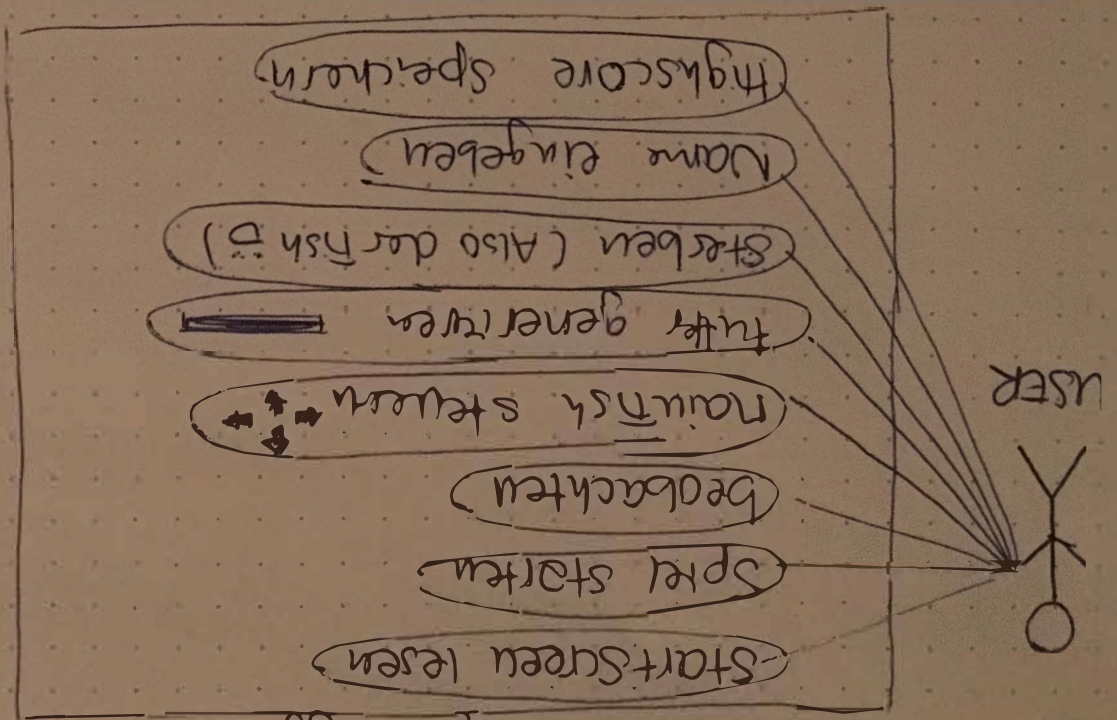 USER
Startscreen lesen
Spiel starten
beobachten
mainFish steuern
futter generieren
Sterben (Also der Fish ü)
Name eingeben
Highscore speichern